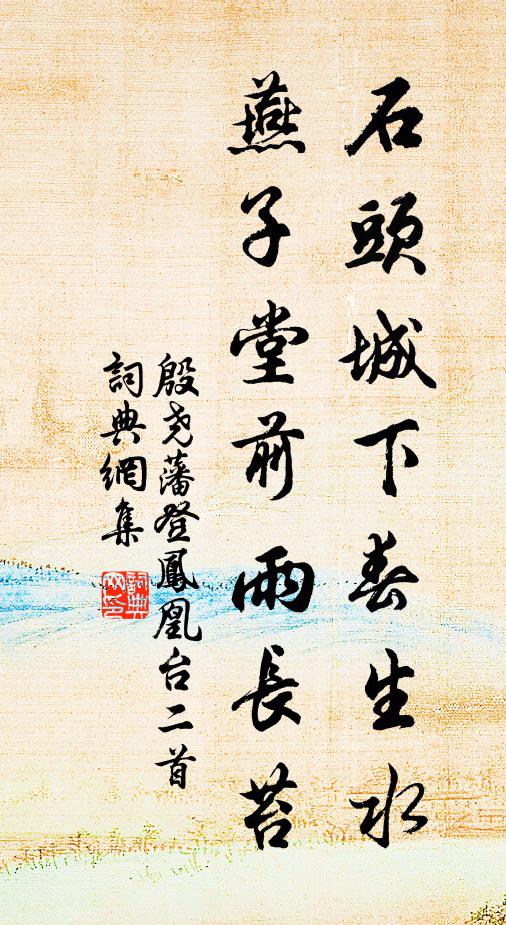 石頭城下春生水
燕子堂前雨長苔
殷尧藩登鳳凰台二首
詞典網集